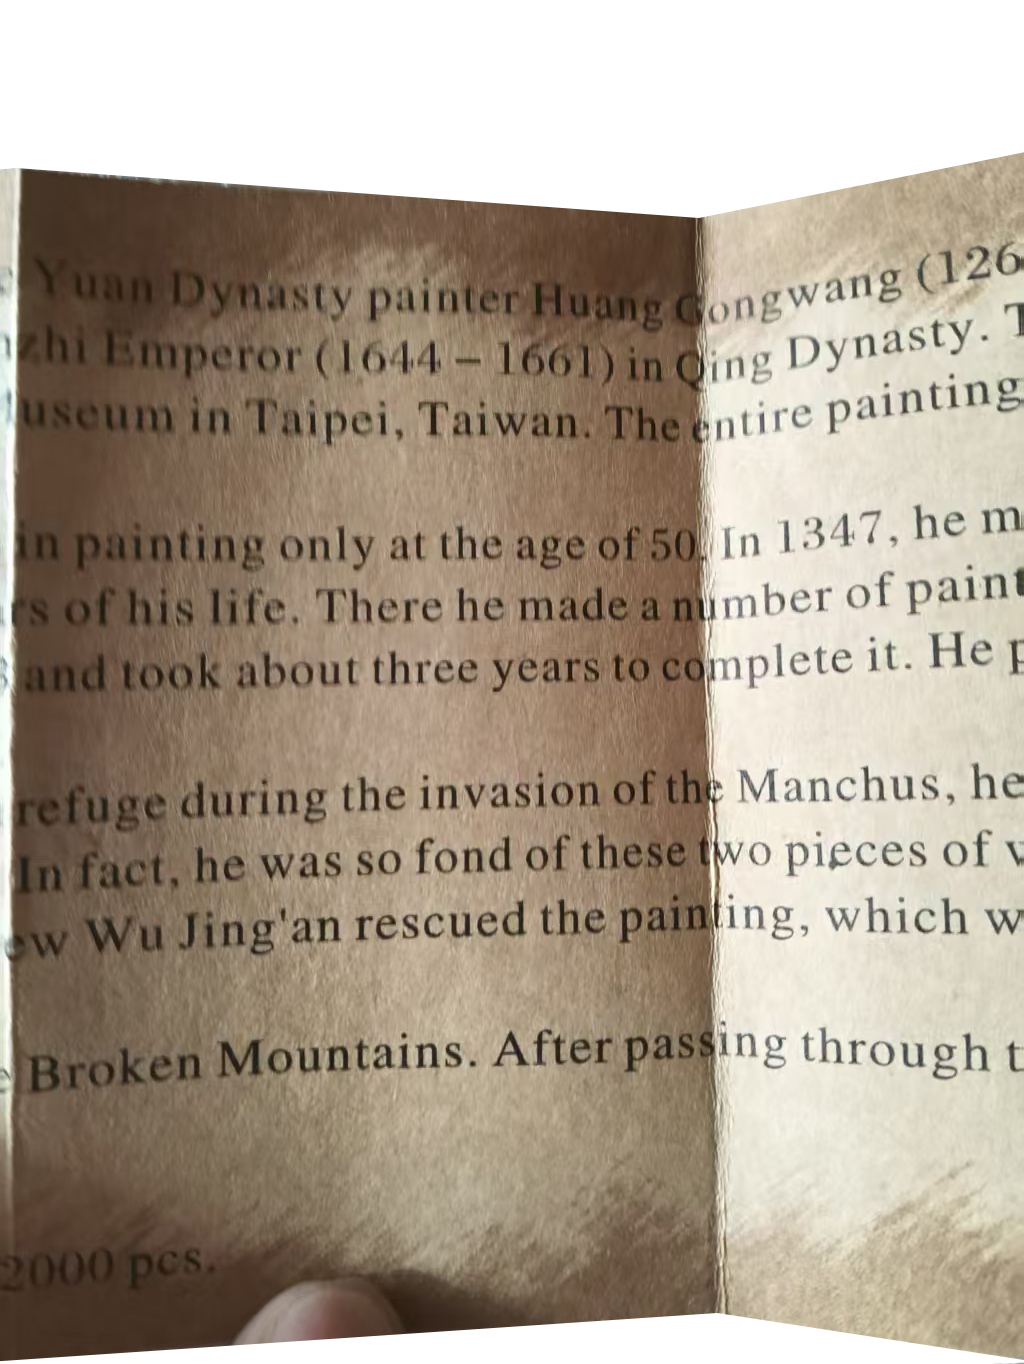 Yuan Dynasty painter Huang Gongwang (126
zhi Emperor (1644 – 1661) in Qing Dynasty. T
useum in Taipei, Taiwan. The entire painting
in painting only at the age of 50. In 1347, he m
rs of his life. There he made a number of paint
and took about three years to complete it. He p
refuge during the invasion of the Manchus, he
In fact, he was so fond of these two pieces of w
ew Wu Jing'an rescued the painting, which w
e Broken Mountains. After passing through t
2000 pcs.